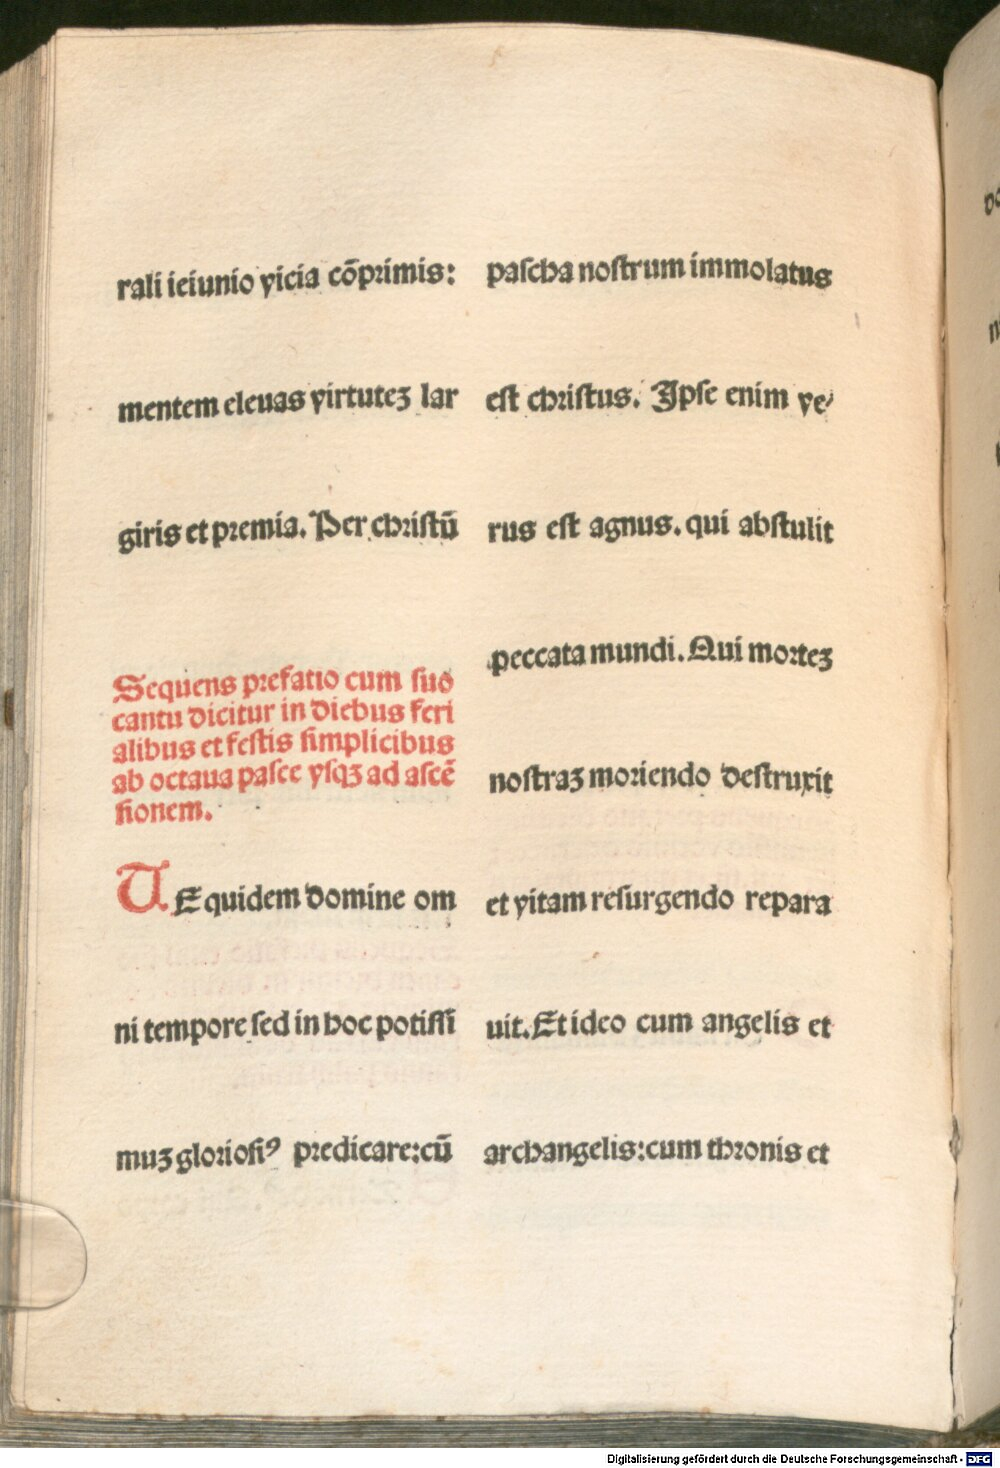 rali ieiunio vicia cōprimis:
mentem eleuas virtuteꝫ lar
giris et premia. Per christū
Sequens prefatio cum suo
cantu dicitur in diebus feri
alibus et festis simplicibus
ab octaua pasce vsqꝫ ad ascē
sionem.
UE quidem domine om
ni tempore sed in hoc potissi
muꝫ gloriosiꝰ predicare: cū
pascha nostrum immolatus
est christus. Ipse enim ve⸗
rus est agnus. qui abstulit
peccata mundi. Qui morteꝫ
nostraꝫ moriendo destruxit
et vitam resurgendo repara
uit. Et ideo cum angelis et
archangelis: cum thronis et
Digitalisierung gefördert durch die Deutsche Forschungsgemeinschaft - DFG